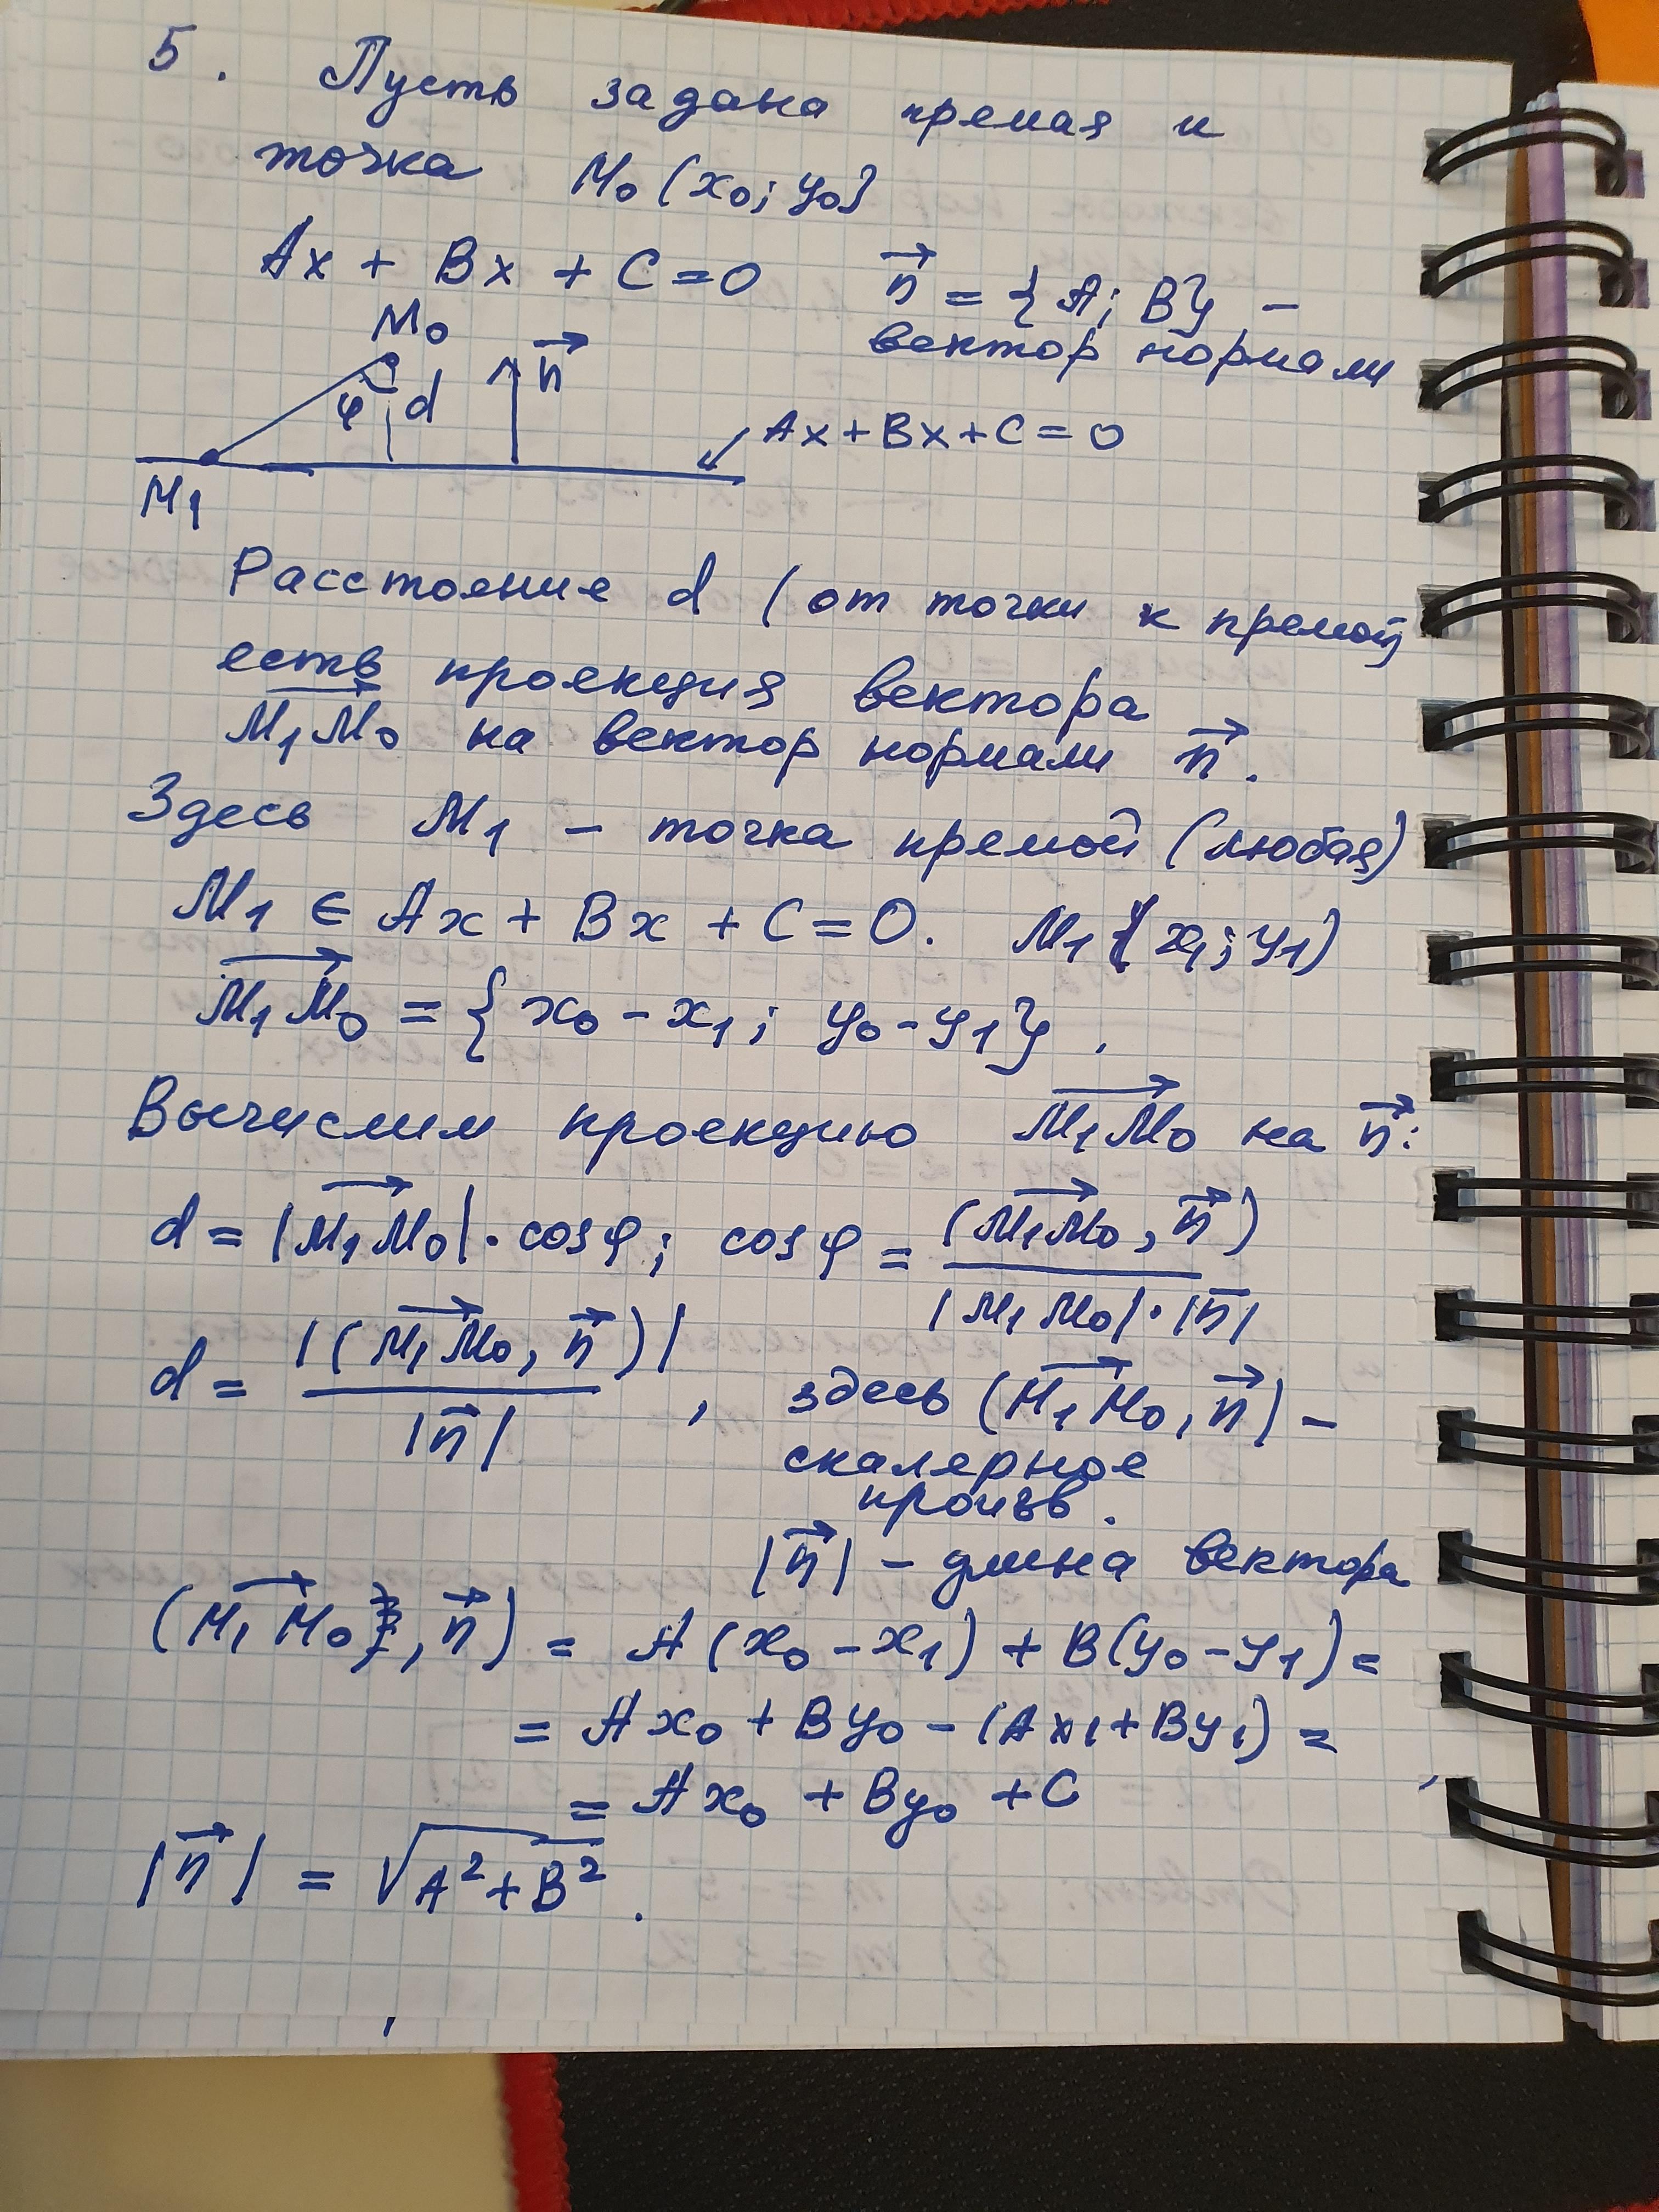 5. Пусть задана прямая и
точка M₀(x₀; y₀}
Ax + Bx + C = 0 n⃗ = {A; B} –
вектор нормали
M₀
n⃗
φ d
Ax + Bx + C = 0
M₁
Расстояние d (от точки к прямой)
есть проекция вектора
M₁M₀ на вектор нормали n⃗.
Здесь M₁ – точка прямой (любая)
M₁ ∈ Ax + Bx + C = 0. M₁(x₁; y₁)
M₁M₀ = {x₀ – x₁; y₀ – y₁}.
Вычислим проекцию M₁M₀ на n⃗:
d = |M₁M₀| · cosφ; cosφ = (M₁M₀, n⃗) / |M₁M₀| · |n⃗|
d = |(M₁M₀, n⃗)| / |n⃗| , здесь (M₁M₀, n⃗) –
скалярное
произв.
|n⃗| – длина вектора
(M₁M₀, n⃗) = A(x₀ – x₁) + B(y₀ – y₁) =
= Ax₀ + By₀ – (Ax₁ + By₁) =
= Ax₀ + By₀ + C
|n⃗| = √(A² + B²).